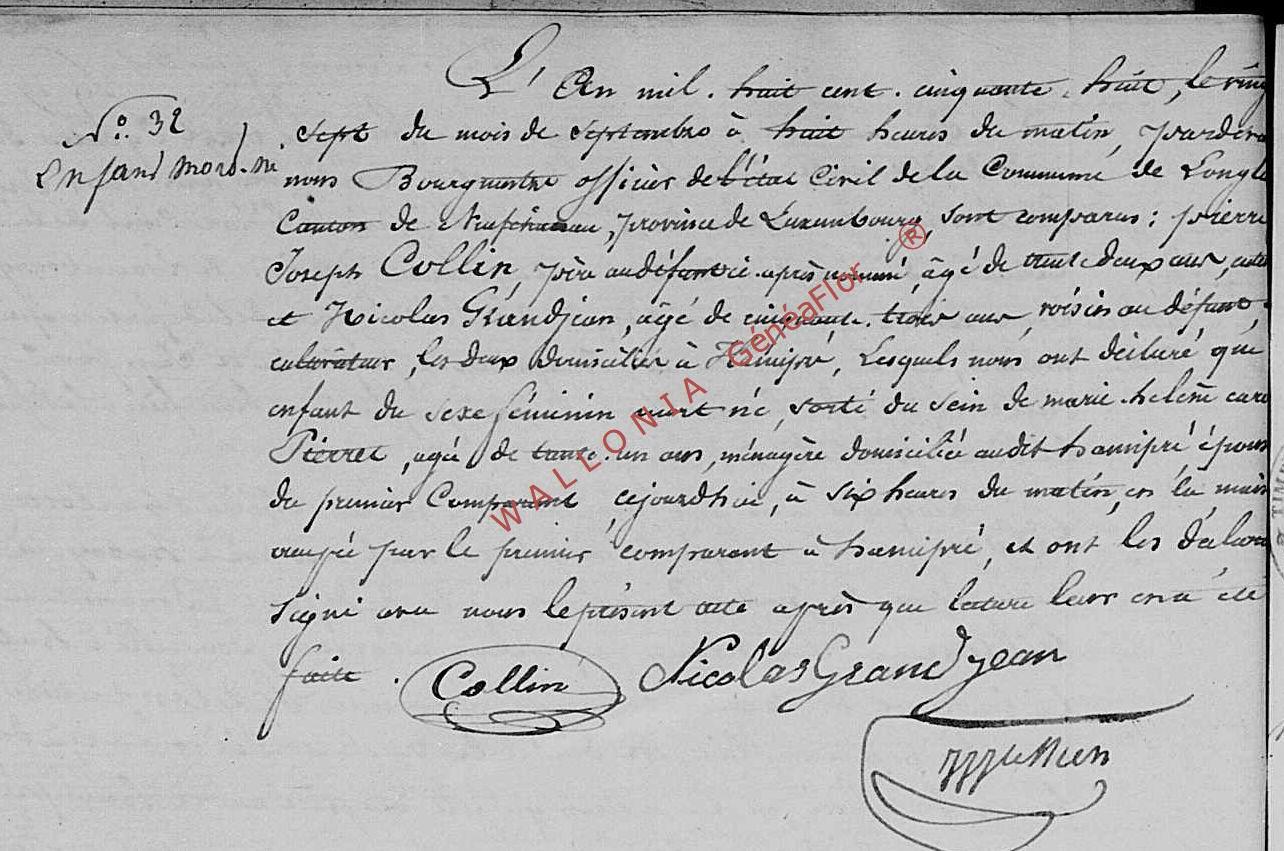 L'An mil huit cent cinquante huit, le ving
N.° 32
Enfand mord-né
sept du mois de septembre à huit heures du matin, pardeva
nous Bourgmestre officier de l'état Civil de la Commune de Longli
Canton de Neufchateau, province de Luxembourg, sont comparus : pierre
Joseph Collin, père au défant ci-après nommé, âgé de trente deux ans, cult
et Nicolas Grandjean, âgé de cinquante trois ans, voisin au défunt,
cultivateur, les deux domiciliés à Hamipré, Lesquels nous ont déclaré que
enfant du sexe féminin mort né, sorti du sein de marie helène caro
Pierret, agée de trente un ans, ménagère domiciliée audit hamipré épous
du premier Comparant, cejourdhui, à six heures du matin, en la mais
occupée par le premier comparant à hamipré, et ont les déclara
signé avec nous le présent acte après que lecture leur en a été
faite.
Collin
Nicolas Grandjean
WALLONIA GénéaFlor ®